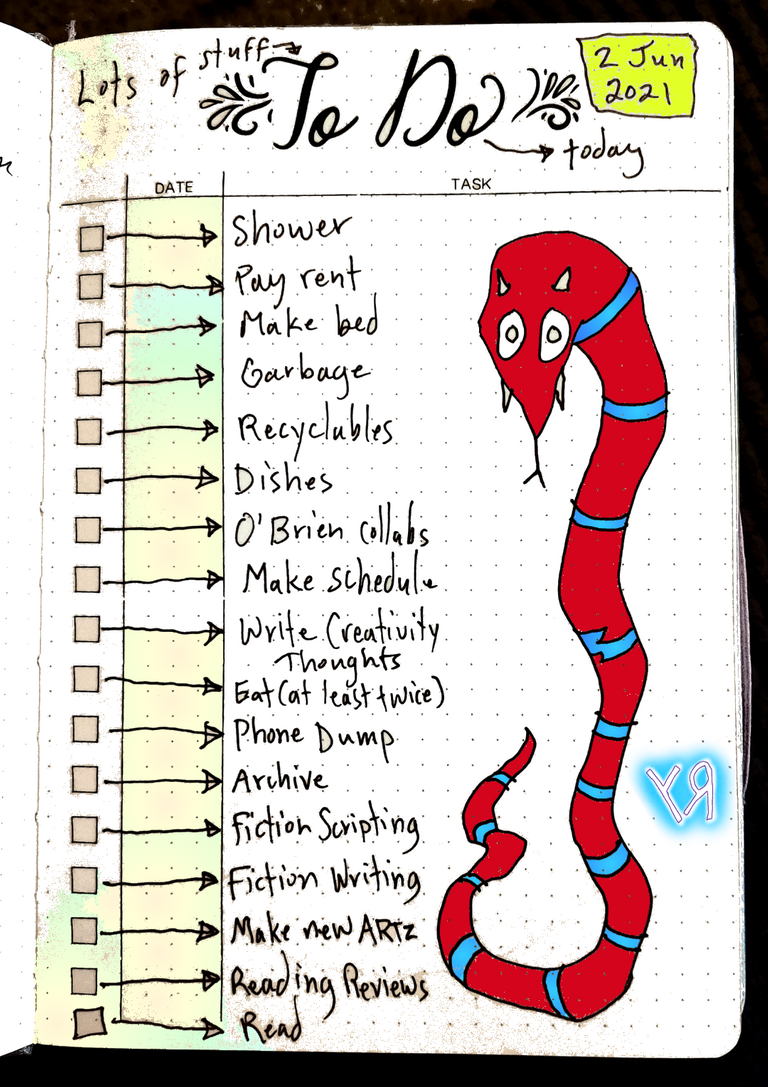 Lots of stuff
To Do
2 Jun
2021
today
DATE
TASK
Shower
Pay rent
Make bed
Garbage
Recyclables
Dishes
O'Brien collabs
Make schedule
Write Creativity
Thoughts
Eat (at least twice)
Phone Dump
Archive
Fiction Scripting
Fiction Writing
Make new ARTz
Reading Reviews
Read